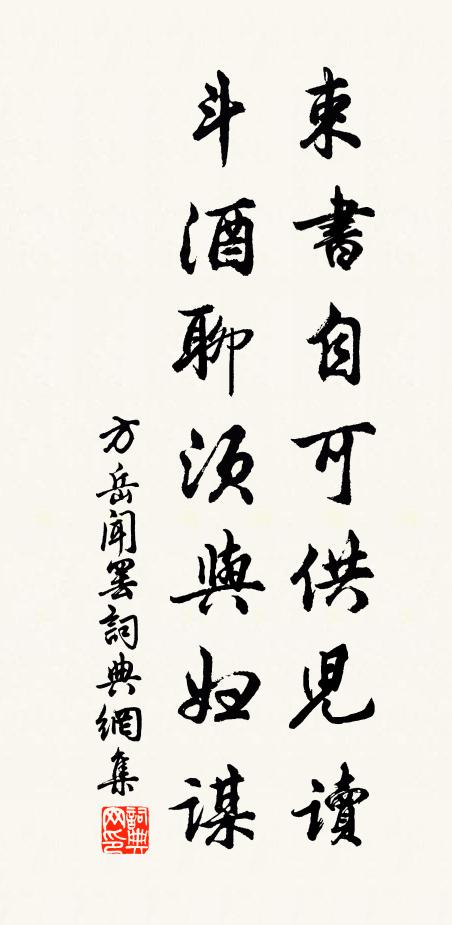 束書自可供兒讀
斗酒聊須與婦謀
方岳聞罷詞典網集
詞典网印